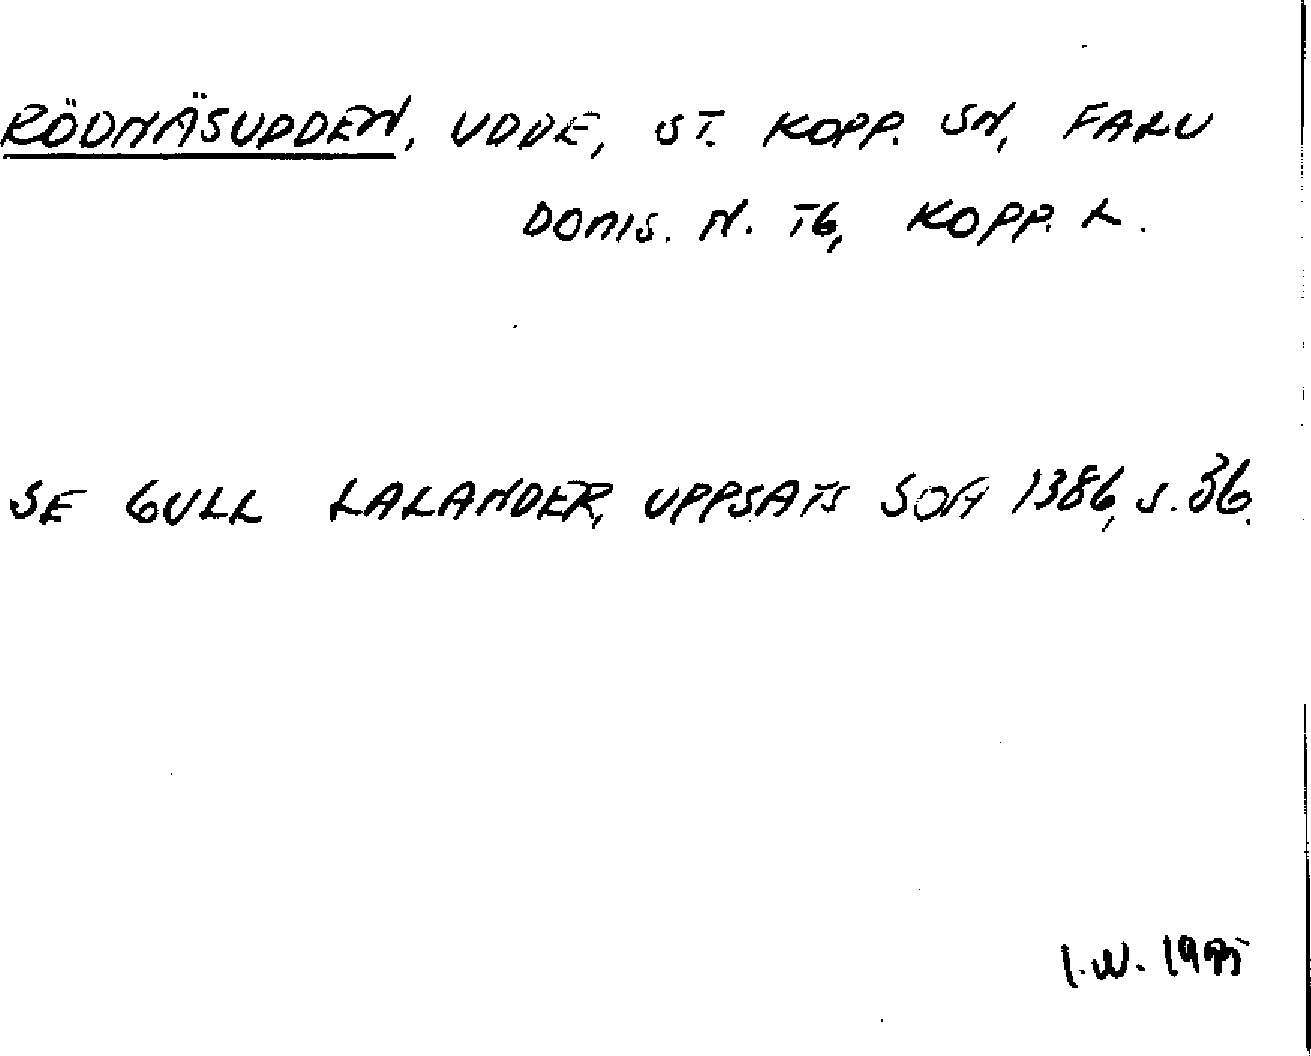 RÖDNÄSUDDEN, UDDE, ST. KOPP. SN, FALU
DOMS. N. TG, KOPP. L.
SE GULL LALANDER, UPPSATS SOA 1386, S. 36.
I.W. 1975